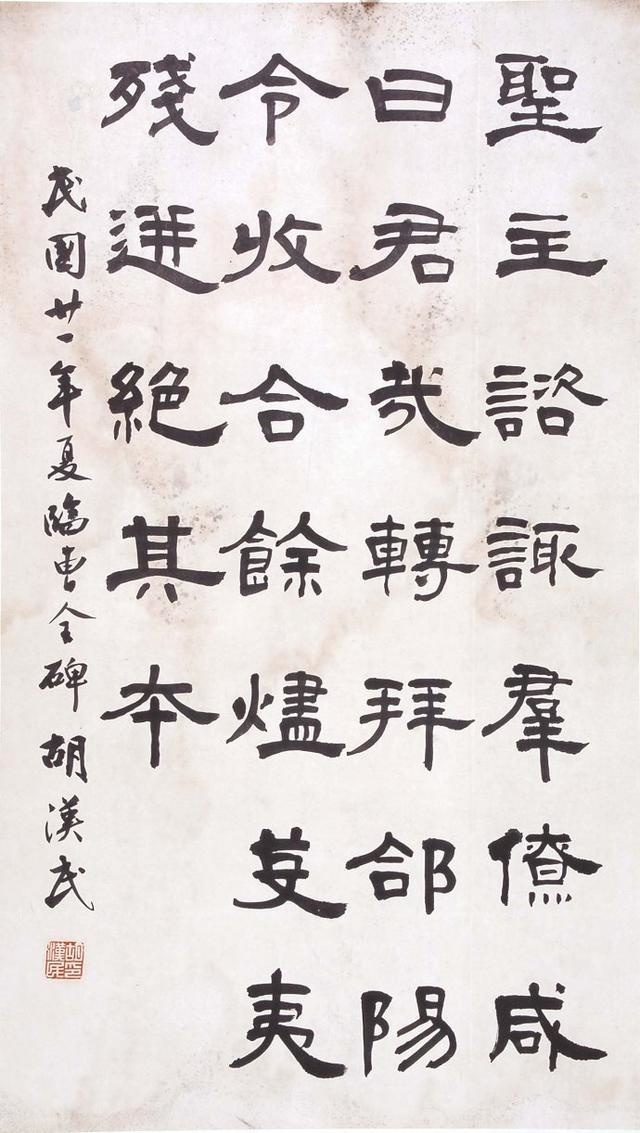 聖主諮諏羣僚咸
曰君哉轉拜郃陽
令收合餘燼芟夷
殘迸絕其本
民國廿一年夏臨曹全碑 胡漢民
胡印漢民